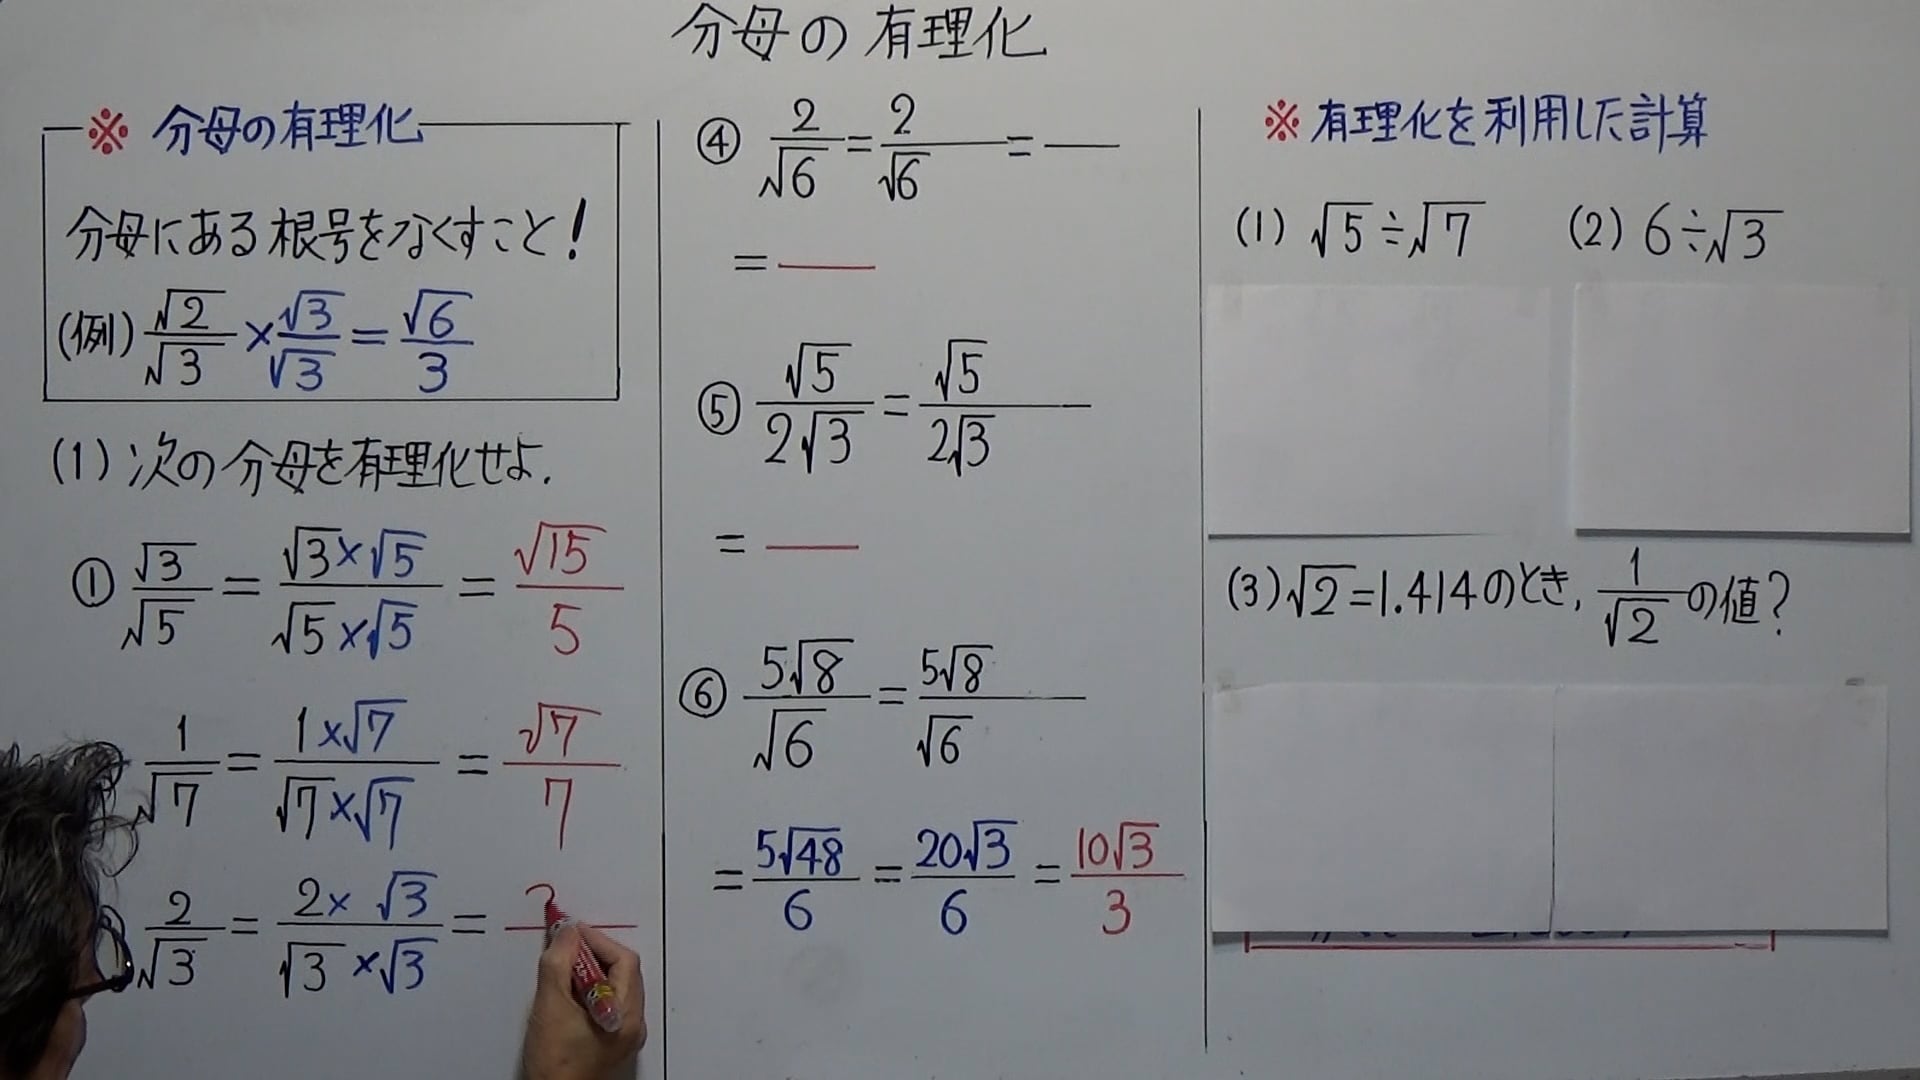 分母の有理化
※ 分母の有理化
分母にある根号をなくすこと!
(例) √2/√3 × √3/√3 = √6/3
(1) 次の分母を有理化せよ.
① √3/√5 = √3×√5/√5×√5 = √15/5
1/√7 = 1×√7/√7×√7 = √7/7
2/√3 = 2×√3/√3×√3 =
④ 2/√6 = 2/√6 =
=
⑤ √5/2√3 = √5/2√3
=
⑥ 5√8/√6 = 5√8/√6
= 5√48/6 = 20√3/6 = 10√3/3
※ 有理化を利用した計算
(1) √5÷√7
(2) 6÷√3
(3) √2=1.414のとき, 1/√2 の値?